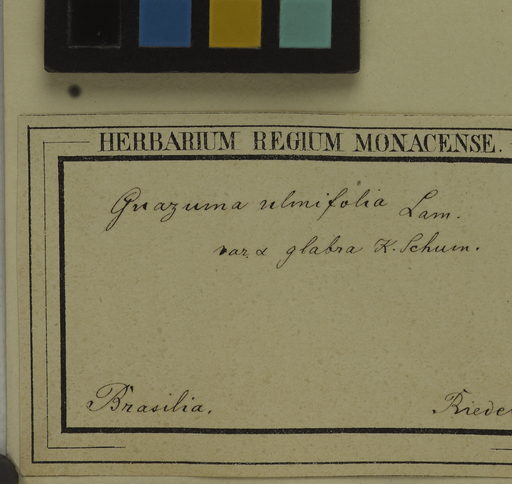 HERBARIUM REGIUM MONACENSE.
Guazuma ulmifolia Lam.
var. α glabra K. Schum.
Brasilia.